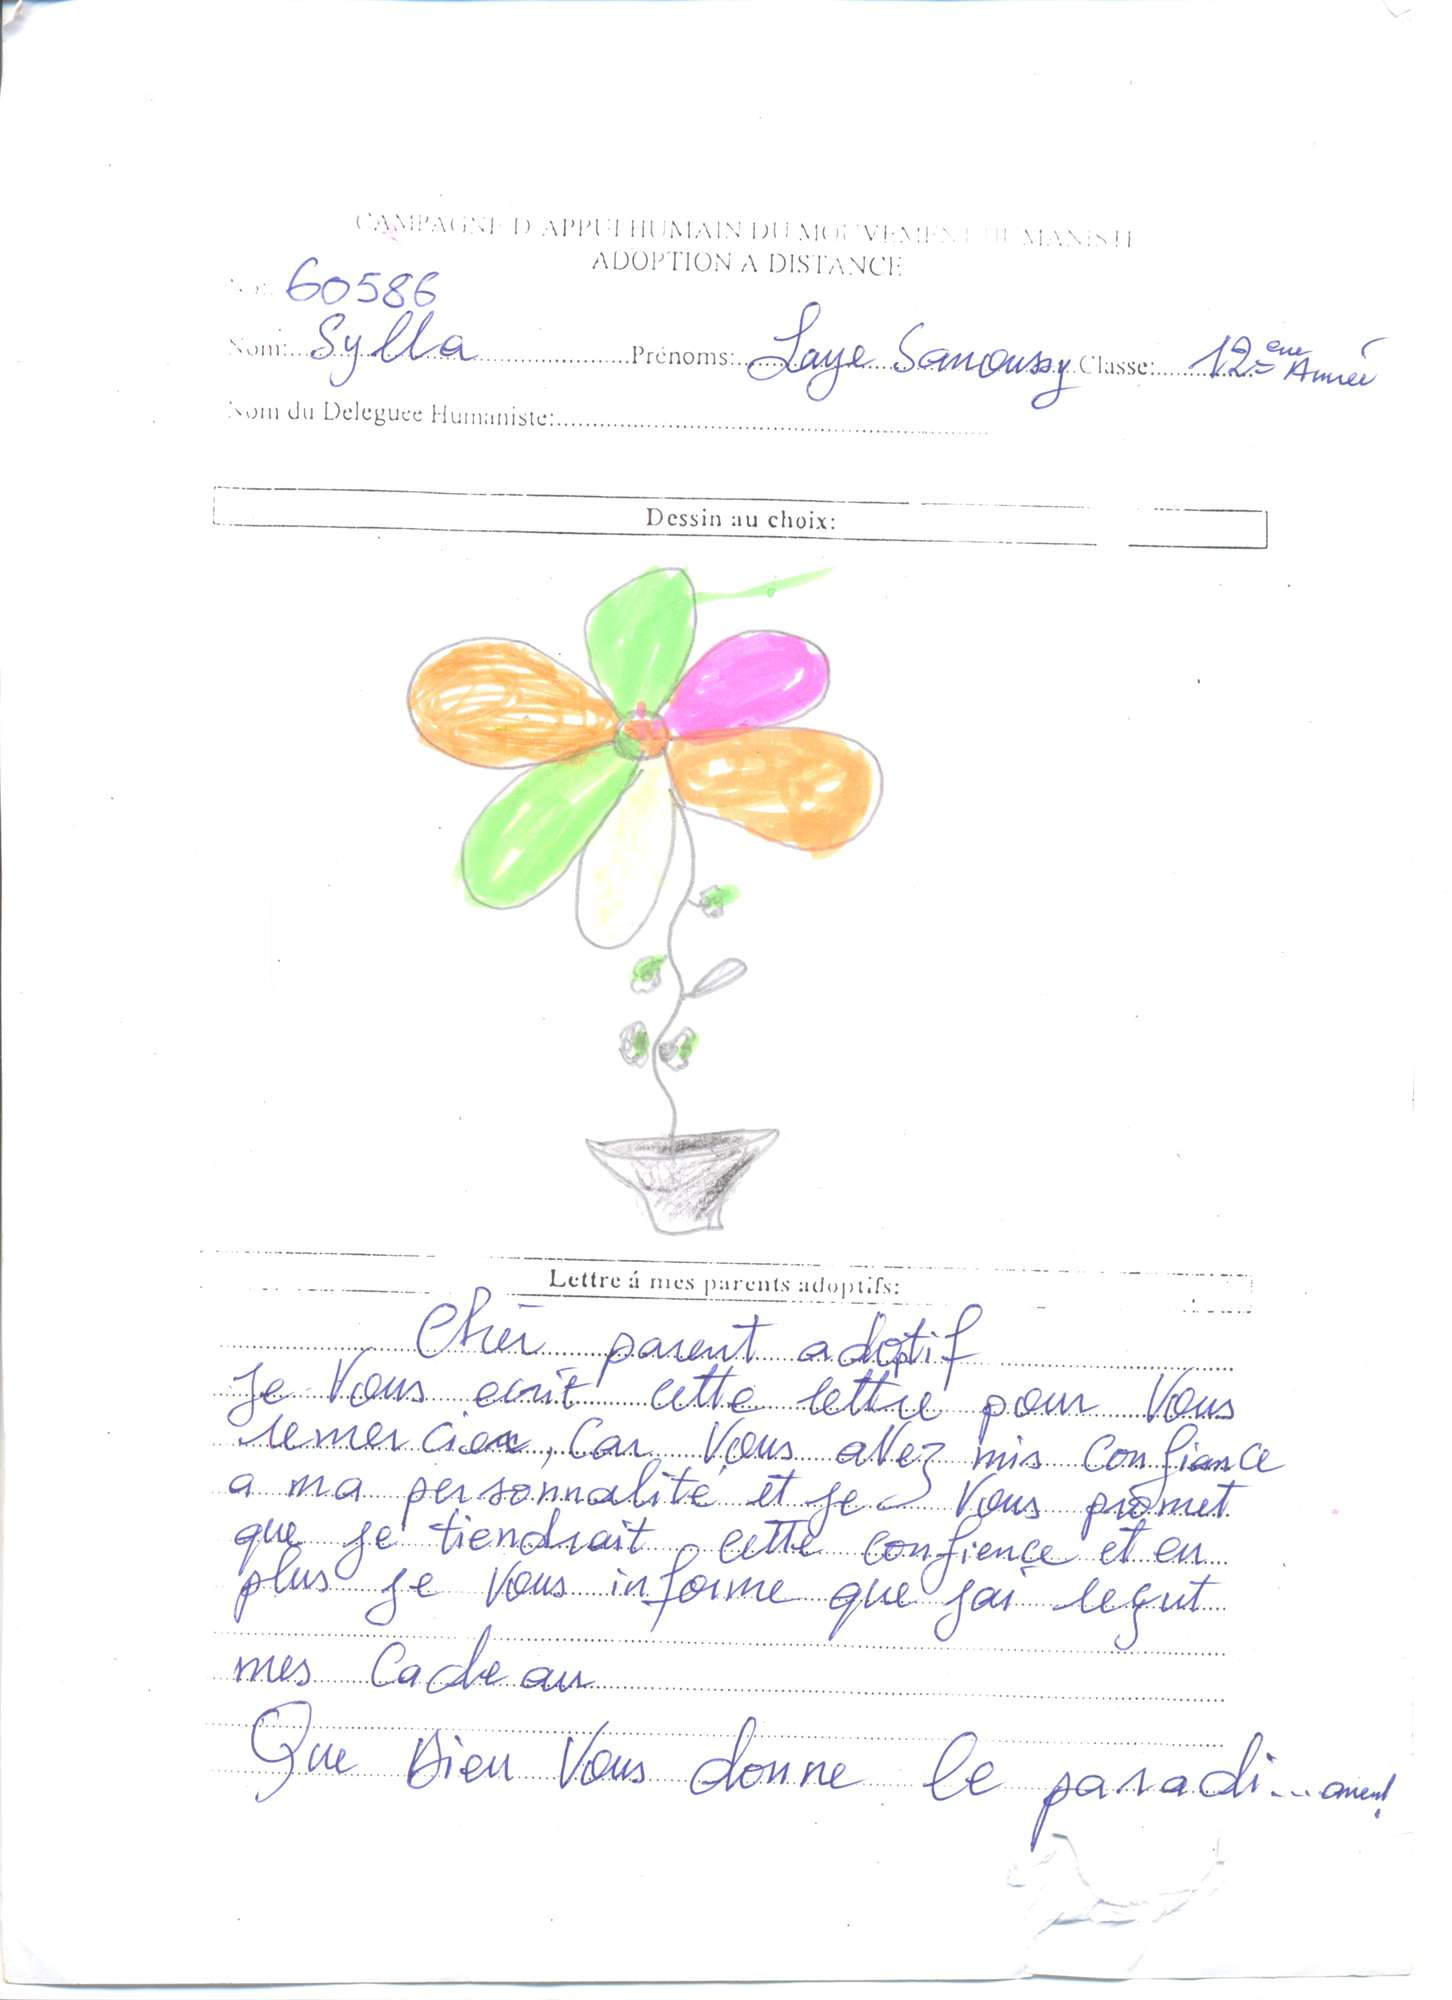 CAMPAGNE D'APPUI HUMAIN DU MOUVEMENT HUMANISTE
ADOPTION A DISTANCE
60586
Nom: Sylla Prénoms: Laye Sanoussy Classe: 12ème Année
Nom du Deleguee Humaniste:
Dessin au choix:
Lettre á mes parents adoptifs:
Chèr parent adoptif
Je Vous ecrit cette lettre pour Vous
remercier, Car Vous avez mis confiance
a ma personnalité et je Vous promet
que je tiendrait cette confience et en
plus je Vous informe que j'ai reçut
mes Cadeau
Que Dieu Vous donne le paradi... ament!